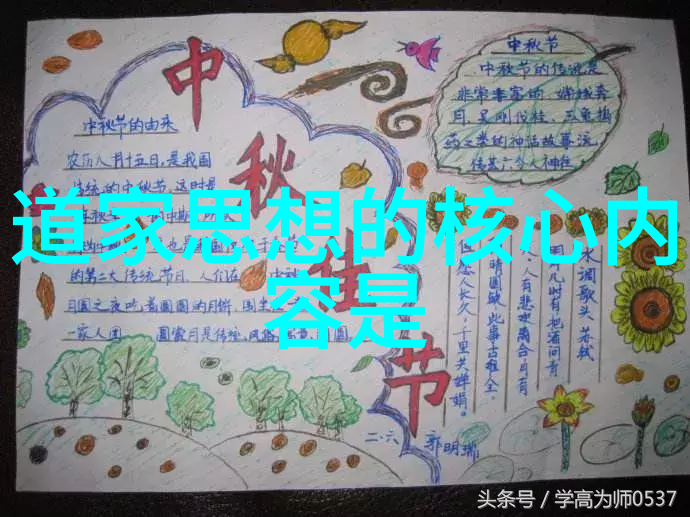 道家思想的核心内
容是
中秋佳节
中秋节的由来
农历八月十五日,是我国
传统的中秋节,这时是
的第二大传统节日,人们在
月圆之夜吃着圆圆的月饼,
一家人团
中秋节
中秋节的传说是
非常丰富的,嫦娥奔
月,吴刚伐桂,玉兔捣
药之类的神话故事流
水调歌头 苏轼
人有悲欢离合月有
阴晴圆缺此事古难全。
但愿人长久,千里共婵娟。
二.六 郭明瑞
头条号/学高为师0537